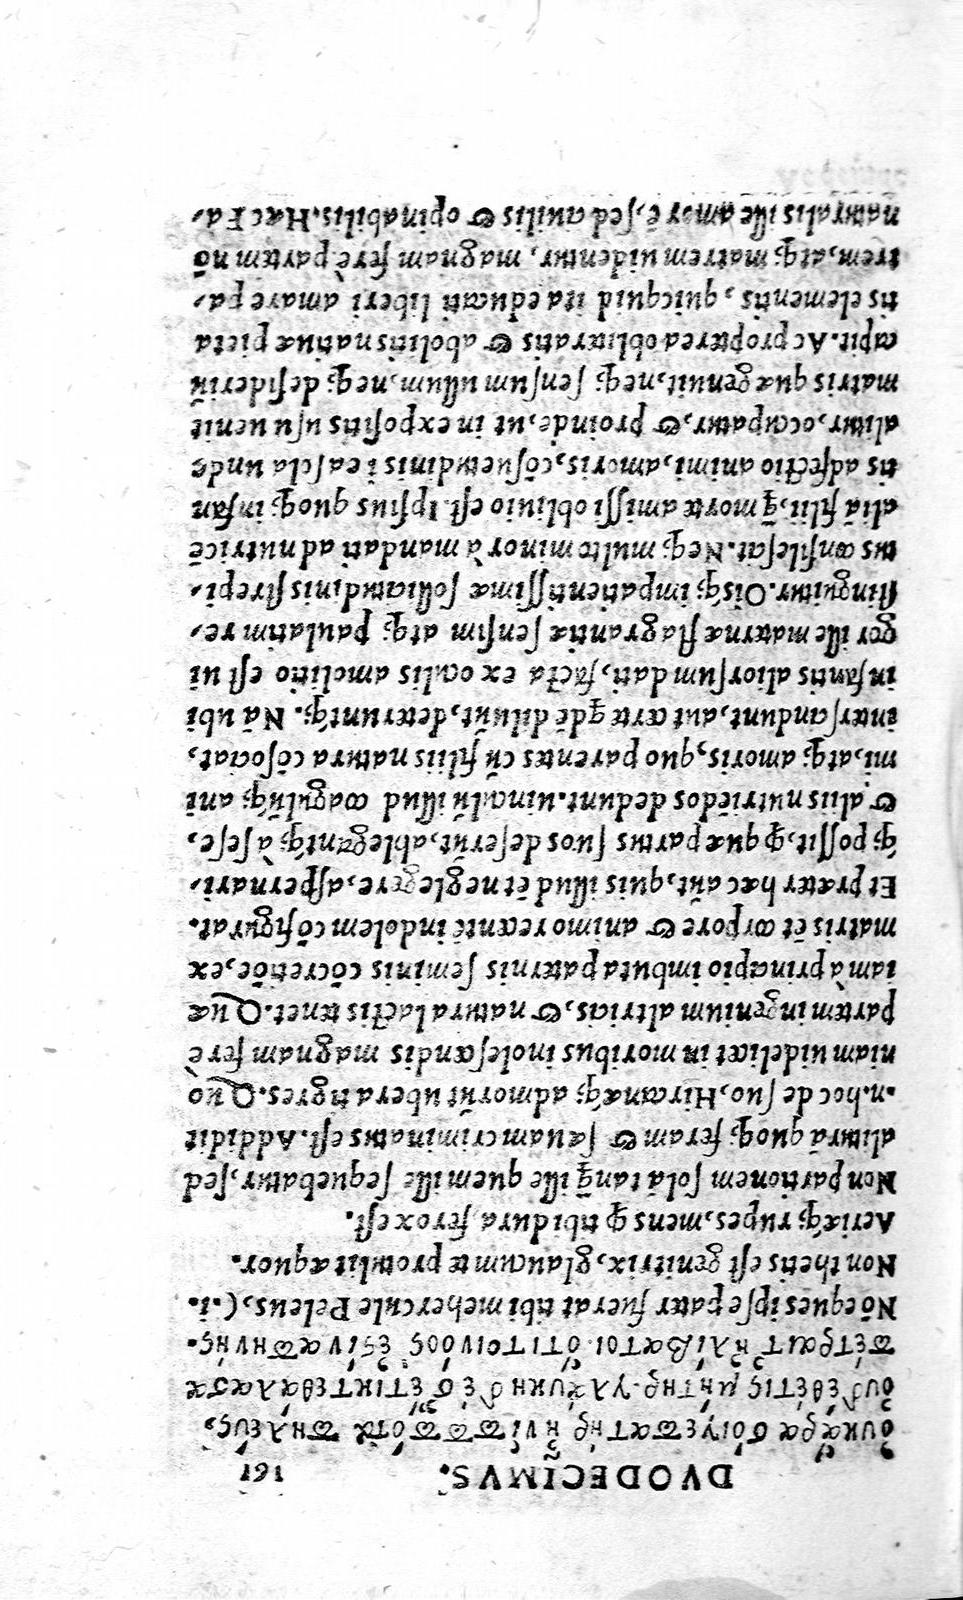 DVODECIMVS. 161
ὀυκ ἄρα σόιγε πατὴρ ἦν ἱππότα πηλεύς,
ὀυδὲ θέτις μήτηρ. γλαυκὴ δέ σ' ἔτικτε θάλασσα
πέτραι τ' ἠλίβατοι. ὅτι τοι νόος ἐςὶν ἀπηνής.
Nō eques ipse pater fuerat tibi mehercule Peleus, (.i.
Non thetis est genitrix, glaucum te protulit æquor.
Aeriæq́; rupes, mens q̃ tibi dura ferox est.
Non portionem solã tanq̃ ille quem ille sequebatur, sed
aliturã quoq; feram & sæuam criminatus est. Addidit
.n. hoc de suo, Hircanæq́; admorũt ubera tigres. Quò
niam uidelicet in moribus inolescendis magnam ferè
partem ingenium altricis, & natura lactis tenet. Quæ
iam à principio imbuta paternis seminis cōcretiōe, ex
matris ēt corpore & animo recentē indolem cōfigurat.
Et præter hæc aũt, quis illud ēt neglegere, aspernari,
q́; possit, q̃ quæ partus suos deserũt, ablegãntq́; à sese,
& aliis nutriēdos dedunt. uinculũ illud coagulũq́; ani
mi, atq; amoris, quo parentes cũ filiis natura cōsociat,
interscindunt, aut certe q̃dē diluũt, deteruntq́;. Nã ubi
infantis aliorsum dati, facta ex oculis amolitio est ui
gor ille maternæ flagrantiæ sensim atq; paulatim re,
stinguitur. Oīsq; impatientissimæ sollicitudinis strepi,
tus consilescit. Neq; multo minor à mandati ad nutricē
aliã filii, q̃ morte amissi obliuio est. Ipsius quoq; infan
tis adfectio animi, amoris, cōsuetudinis ī ea sola unde
alitur, occupatur, & proinde, ut in expositis usu uenit
matris quæ genuit, neq; sensum ullum, neq; desideriũ
capit. Ac propterea obliteratis & abolitis natiuæ pieta
tis elementis, quicquid ita educati liberi amare pa,
trem, atq; matrem uidentur, magnam ferè partem nō
naturalis ille amor ē, sed ciuilis & opinabilis. Hæc Fa,